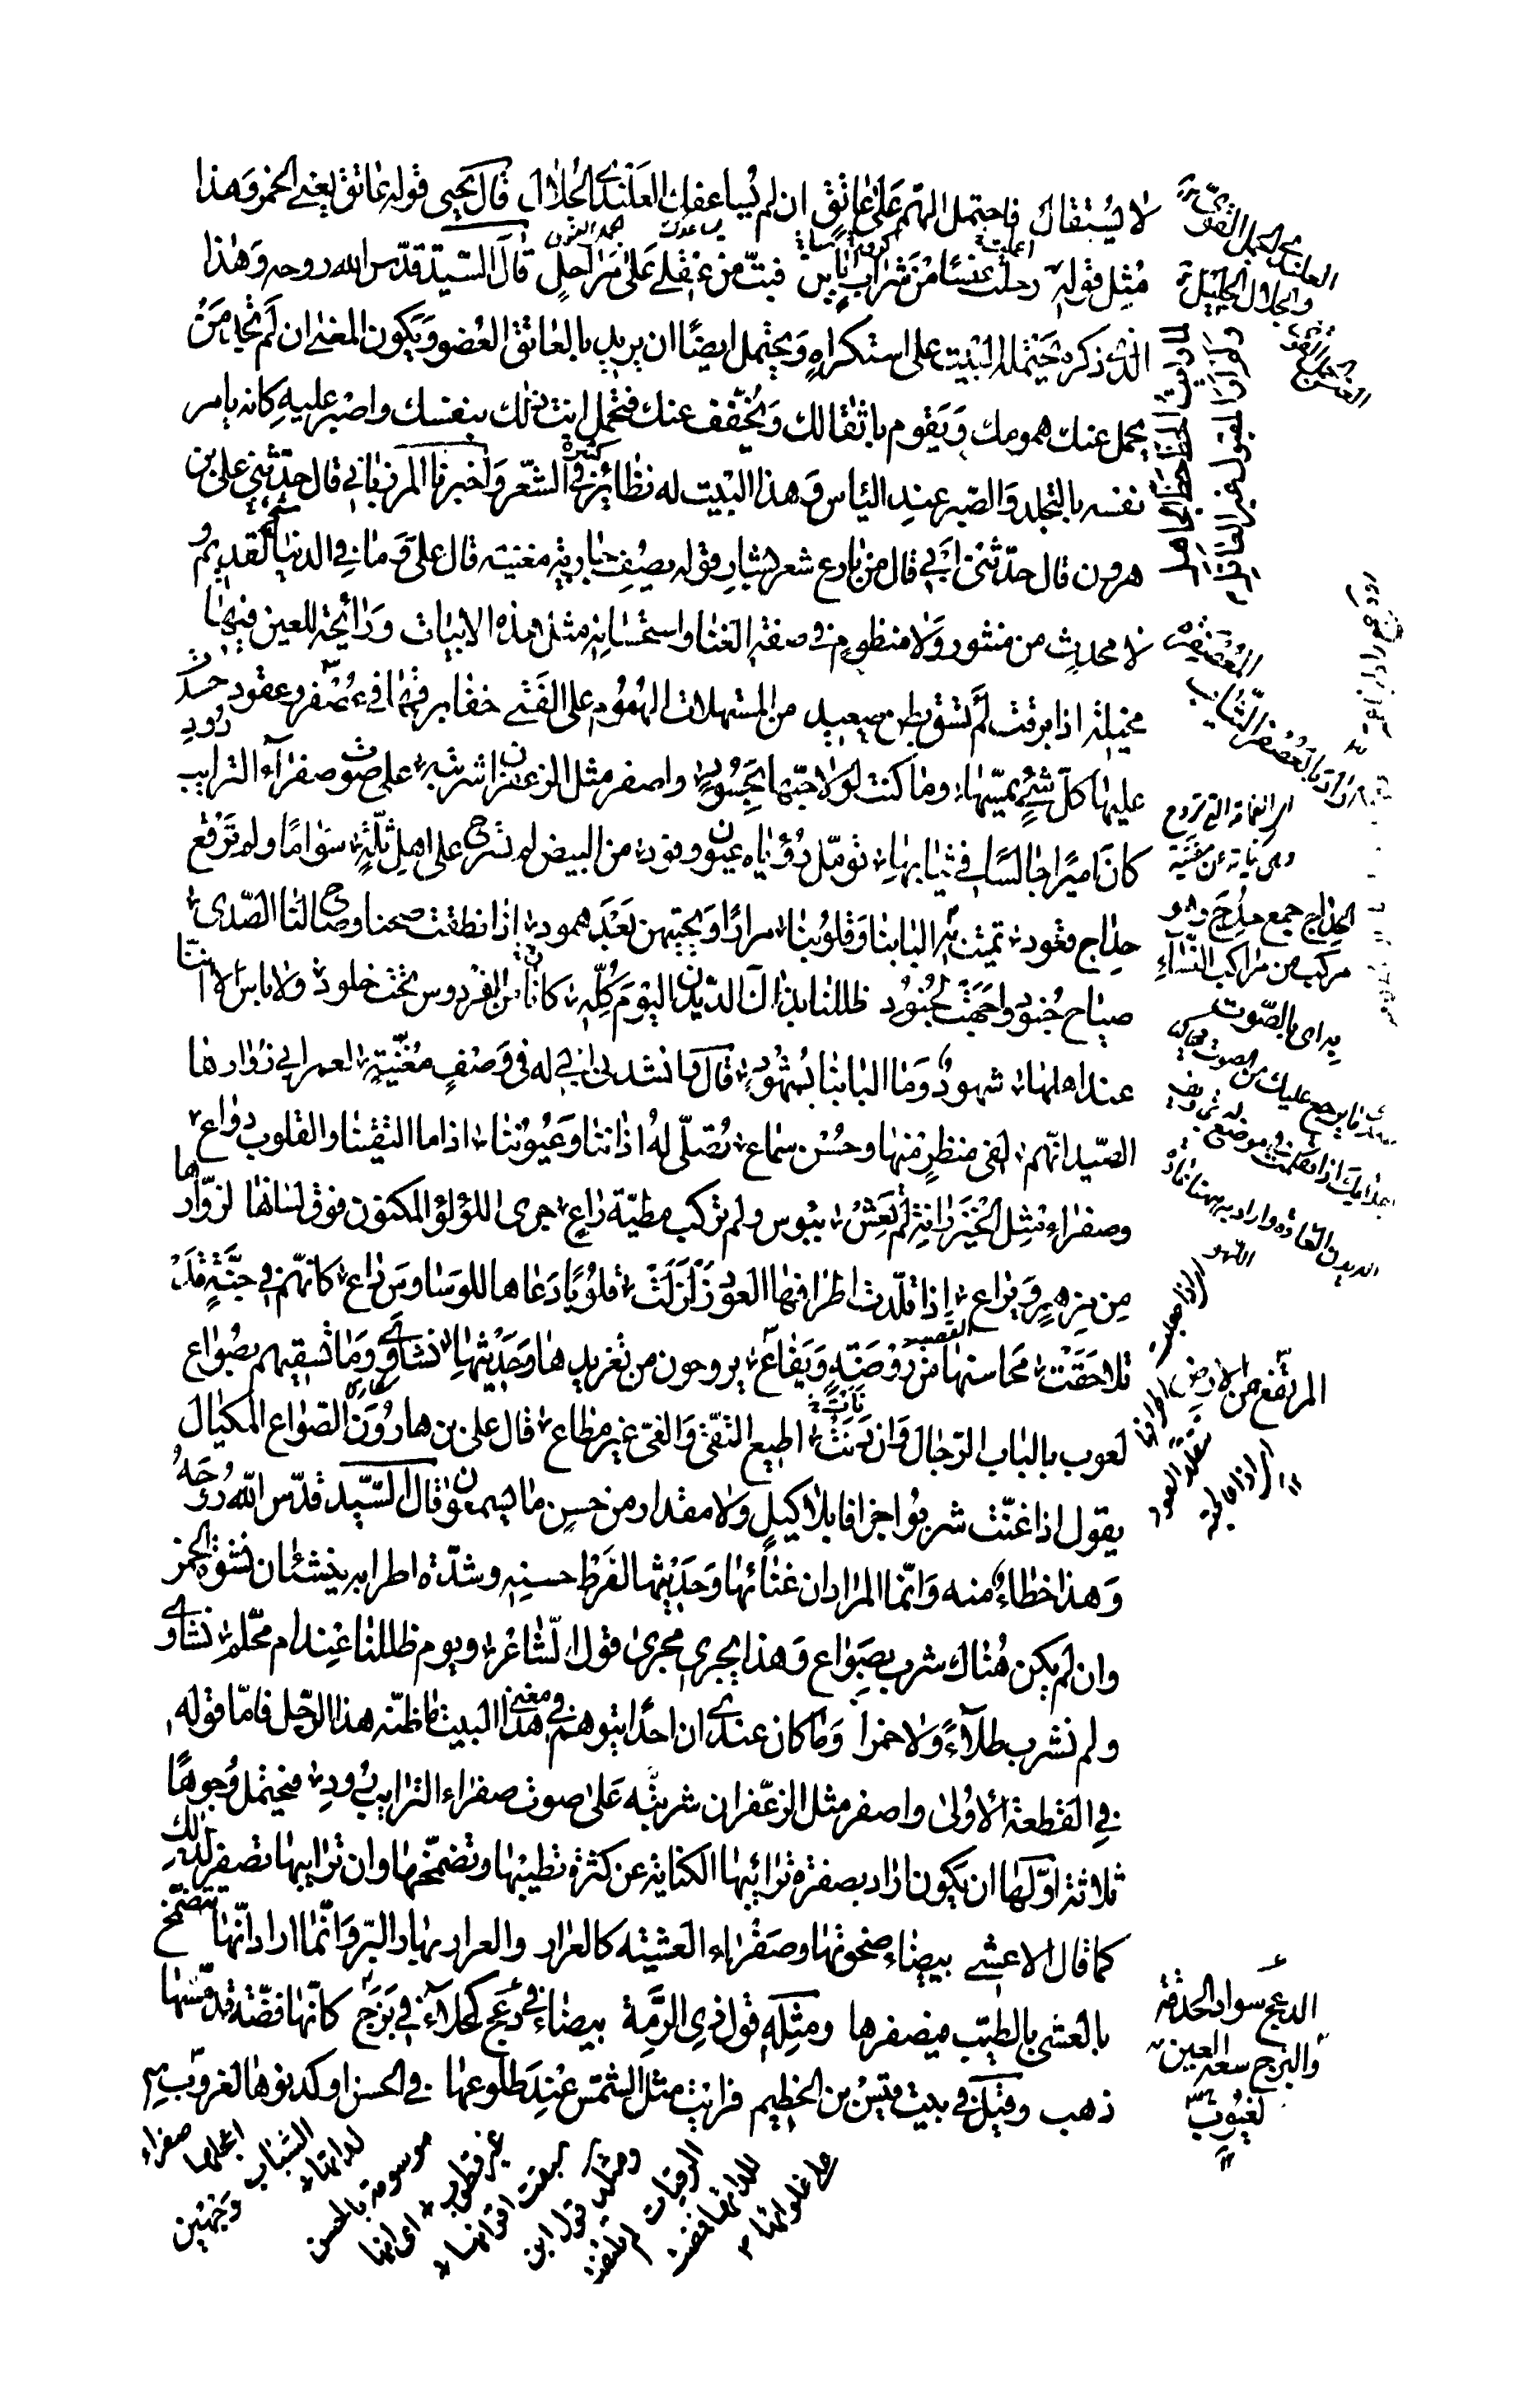 لا يستقال فاحتمل الهم على عاتق ان لم يساعفك العلندى الجلال قال يحيى قوله عاتق يعني الخمر وهذا
مثل قوله رحلت عنسا من شراب بابل فبت من عقلي على مراحل قال السيد قدس الله روحه وهذا
الذي ذكره يحتمله البيت على استكراه ويحتمل ايضا ان يريد بالعاتق العضو ويكون المعنى ان لم تجد من
يحمل عنك همومك ويقوم باثقالك ويخفف عنك فتحمل انت ذلك بنفسك واصبر عليه كانه يامر
نفسه بالتجلد والصبر عند الياس وهذا البيت له نظائر كثيرة في الشعر واخبرنا المرزباني قال حدثني علي بن
هرون قال حدثني ابي قال من بارع شعر بشار قوله يصف جارية مغنية قال علي وما في الدنيا شيء لقديم و
لا محدث من منثور ولا منظوم في صفة الغنا واستحسانه مثل هذه الابيات ورائحة للعين فيها
مخيلة اذا برقت لم تسق بطن صعيد من المستهلات الهموم على الفتى خفا برقها في عصفر وعقود حسدت
عليها كل شيء يمسها وما كنت لولا حبها بحسود واصفر مثل الزعفران شربته على صوت صفراء الترايب رود
كان اميرا جالسا في ثيابها تؤمل رؤياه عيون وفود من البيض لم تسرح على اهل ثلة سواما ولم ترفع
حداج قعود تميت به البابنا وقلوبنا مرارا وتحييهن بعد همود اذا نطقت صحنا وصاح لنا الصدى
صياح جنود وجهت لجنود ظللنا بذاك الديدن اليوم كله كاننا من الفردوس تحت خلود ولا باس الا اننا
عند اهلها شهود وما البابنا بشهود قال وانشدني ابي له في وصف مغنية لعمرابي زوارها
الصيد انهم لفي منظر منها وحسن سماع تصلي له اذاننا وعيوننا اذا ما التقينا والقلوب دواع
وصفراء مثل الخيزرانة لم تعش ببوس ولم تركب مطية راع جرى اللؤلؤ المكنون فوق لسانها لزوارها
من مزهر ويراع اذا قلدت اطرافها العود زلزلت قلوبا دعاها للوساوس داع كانهم في جنة قد
تلاحقت محاسنها من روضة ويفاع يروحون من تغريدها وحديثها نشاوى وما تسقيهم بصواع
لعوب بالباب الرجال وان دنت اطيع التقى والغي غير مطاع قال علي بن هارون الصواع المكيال
يقول اذا غنت شربوا جزافا بلا كيل ولا مقدار من حسن ما يسمعون قال السيد قدس الله روحه
وهذا خطاء منه وانما المراد ان غنائها وحديثها لفرط حسنه وشدة اطرابه ينشئان نشوة الخمر
وان لم يكن هناك شرب بصواع وهذا يجري مجرى قول الشاعر ويوم ظللنا عند ام محلم نشاوى
ولم نشرب طلاء ولا خمرا وما كان عندي ان احدا يتوهم في معنى هذا البيت ما ظنه هذا الرجل فاما قوله
في القطعة الاولى واصفر مثل الزعفران شربته على صوت صفراء الترايب رود فيحتمل وجوها
ثلاثة اولها ان يكون اراد بصفرة ترائبها الكناية عن كثرة تطيبها وتضمخها وان ترايبها تصفر لذلك
كما قال الاعشى بيضاء ضحوتها وصفراء العشية كالعرار والعرار بهار البر وانما اراد انها تتضمخ
بالعشي بالطيب فيصفرها ومثله قول ذي الرمة بيضاء في دعج كحلاء في برج كانها فضة قد مسها
ذهب وقيل في بيت قيس بن الخطيم فرايت مثل الشمس عند طلوعها في الحسن او كدنوها لغروب
العلندى الجمل القوي
والجلال الجليل
العصفر
اراد بالعصفر الثياب
الحداج جمع حدج وهو
مركب من مراكب النساء
الديدن العادة واراد به ههنا
اللهو
المرتفع من الارض
الدعج سواد الحدقة
والبرج سعة العين
لغيوب